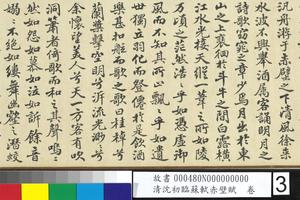 汎舟游於赤壁之下清風徐來
水波不興舉酒屬客誦明月之
詩歌窈窕之章少焉月出於東
山之上裴徊於斗牛之間白露橫
江水光接天縱一葦之所如陵
萬頃之茫然浩〻乎如馮虛御
風而不知其所止飄〻乎如遺
世獨立羽化而登僊於是飲酒
樂甚扣舷而歌之歌曰桂棹兮
蘭槳擊空明兮泝流光渺〻兮
余懷望美人兮天一方客有吹
洞簫者倚歌而和之其聲嗚〻
然如怨如慕如泣如訴餘音
嫋〻不絕如縷舞幽壑之潛蛟
故書000480N000000000
清沈初臨蘇軾赤壁賦 卷
3